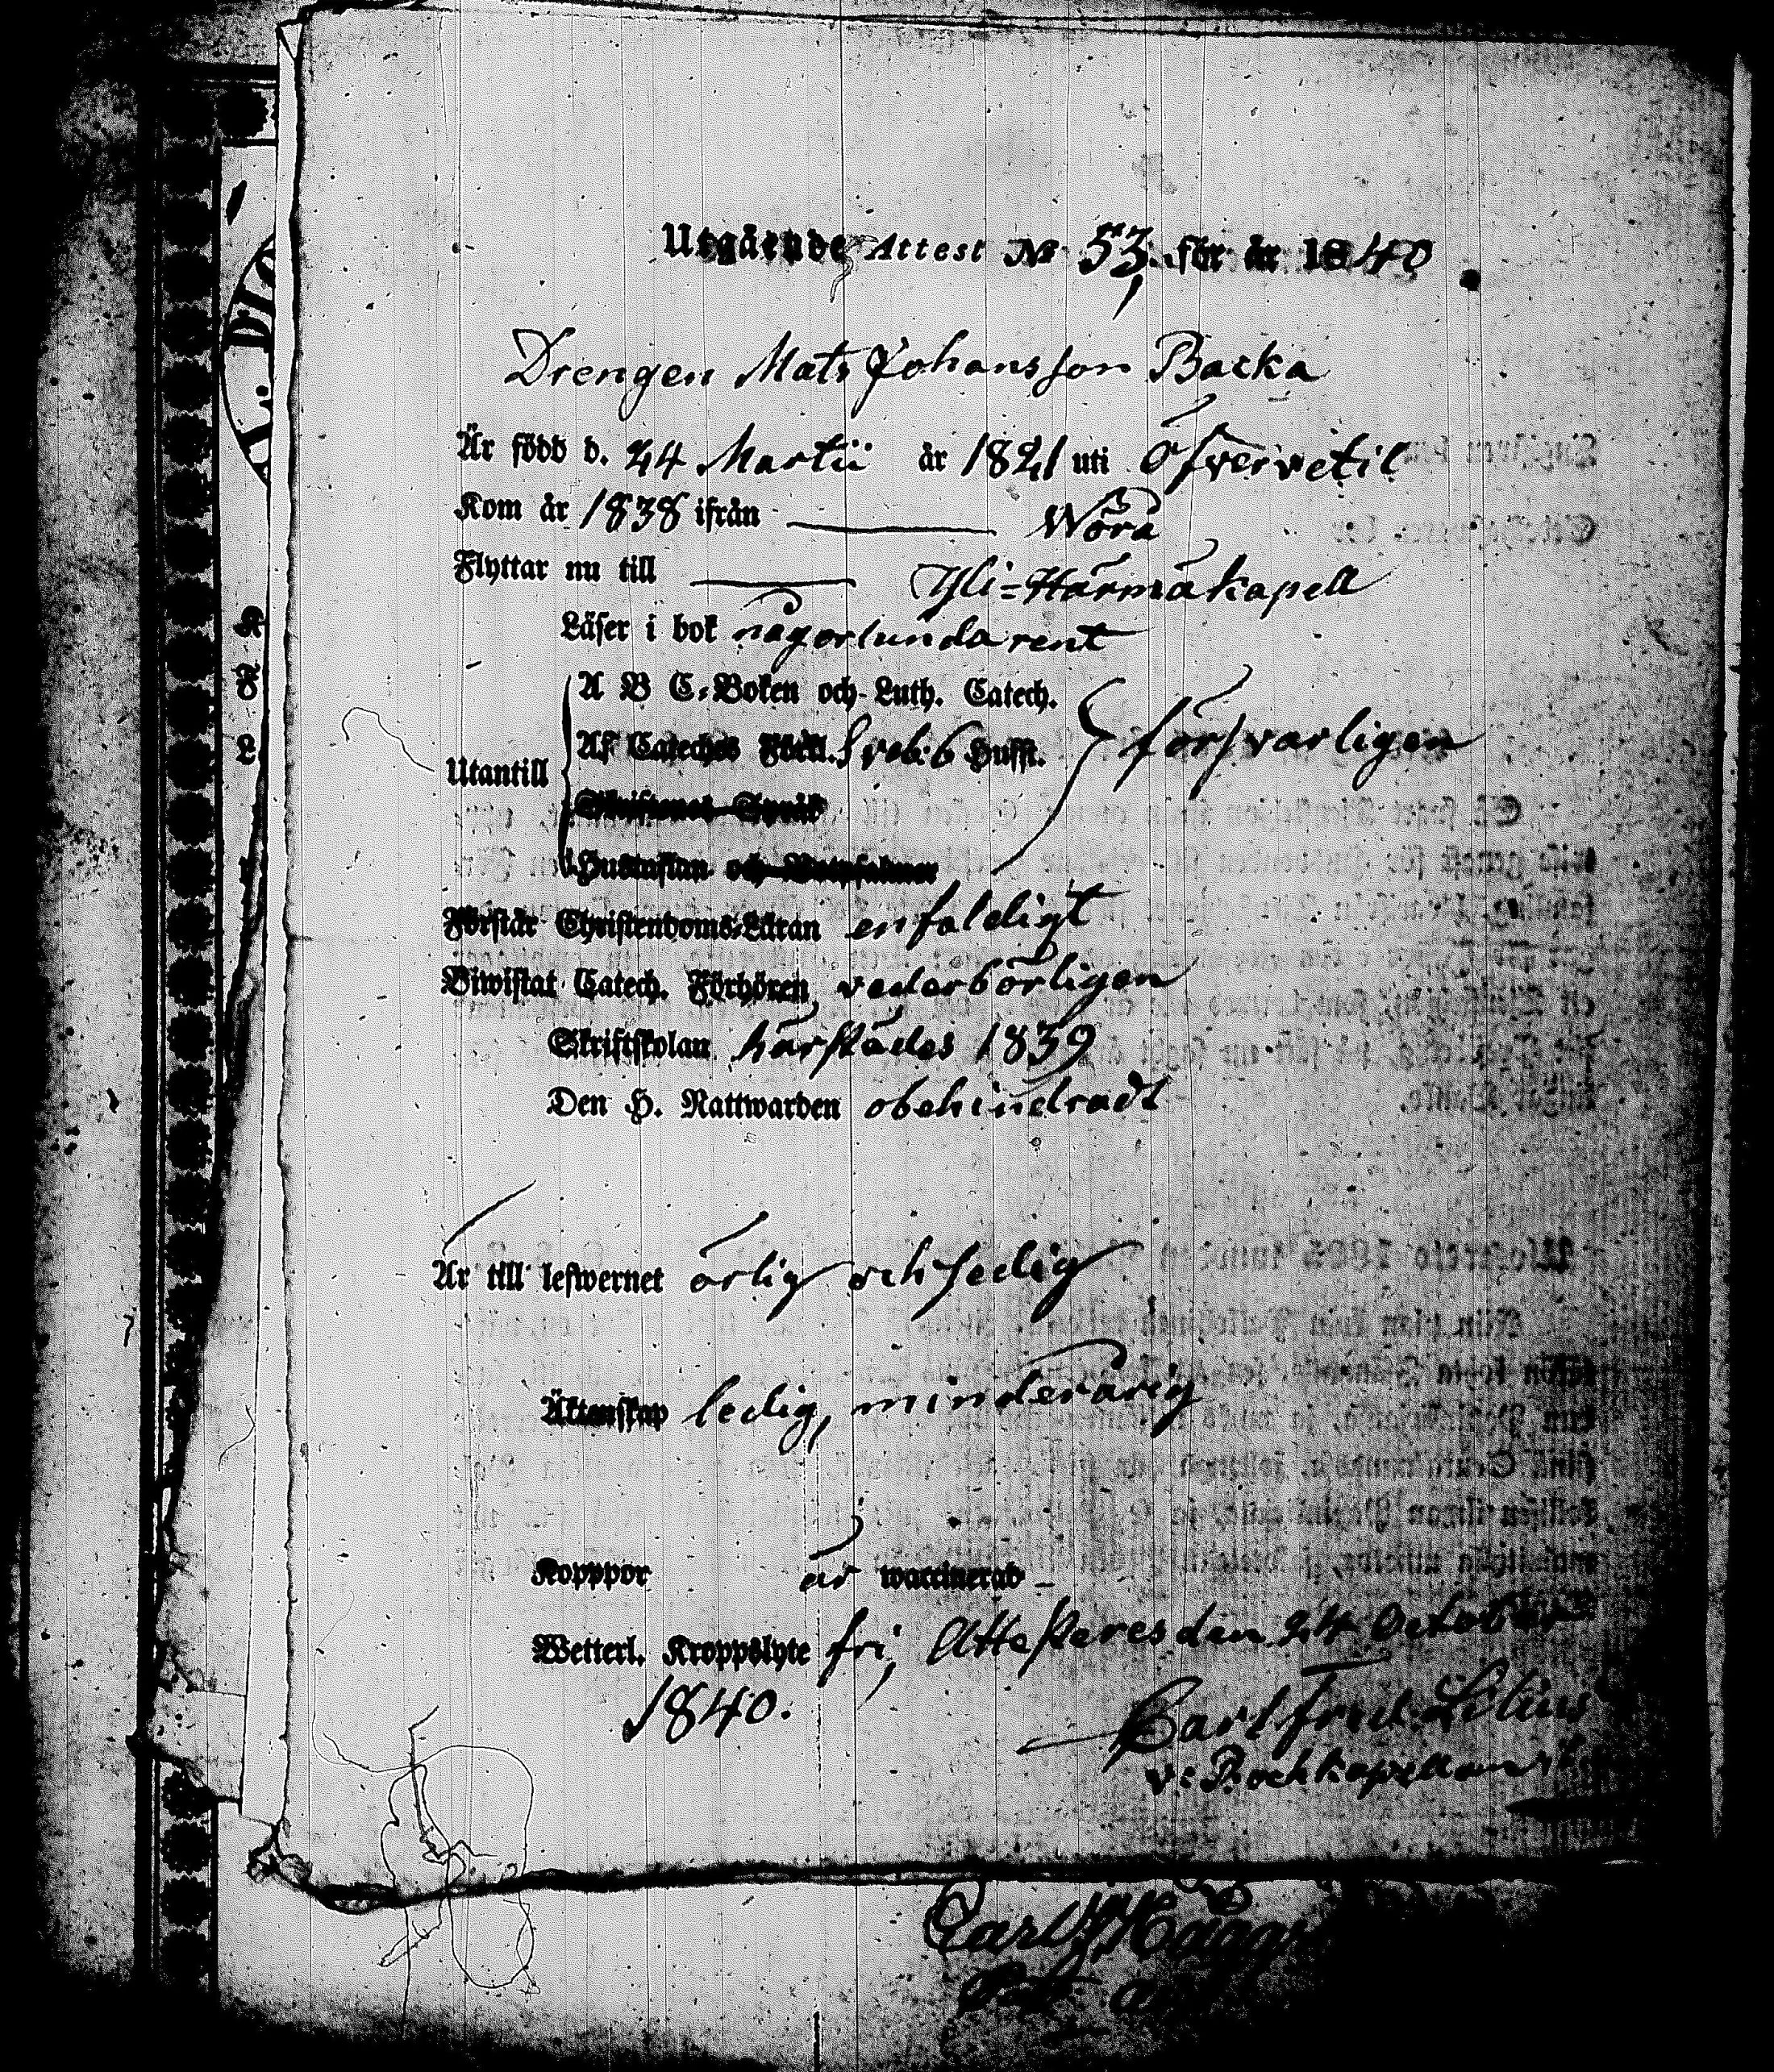 Utgående Attest № 53. för år 1840
Drengen Mats Johansson Backa
Är född d. 24 Martii år 1821 uti Öfvervetil
Kom år 1838 ifrån Wörå
Flyttar nu till Yli-Härmä kapell
Läser i bok någorlunda rent
A B C-Boken och Luth. Catech.
Af Cateches Förkl. Hufst. försvarligen
Utantill
Skriftenes Språk
Hustaflan och Botpsalmer
Förstår Christendoms-Läran enfaldigt
Biwistat Catech. Förhören vederbörligen
Skriftskolan härstädes 1839
Den H. Nattwarden obehindradt
Är till lefwernet ärlig och sedig
Äktenskap ledig, minderårig
Kopppor är waccinerad
Wetterl. Kroppslyte fri, Attesteres den 24 October
1840.
Carl Fred. Lilius
v: P. och kapellan
Carl